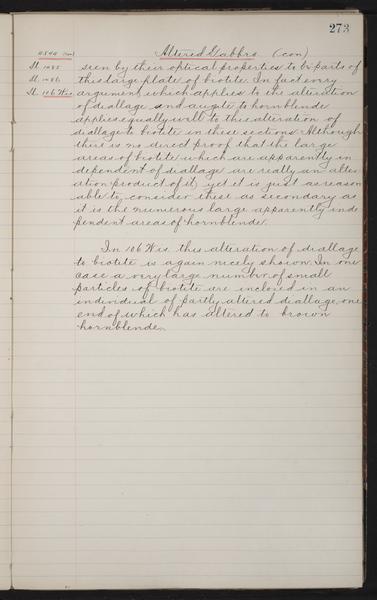 273
Altered Gabbro (con)
seen by their optical properties to be parts of
this large plate of biotite. In fact every
St. 106 Wis. argument which applies to the alteration
of diallage and augite to hornblende
applies equally well to this alteration of
diallage to biotite in these sections. Although
there is no direct proof that the large
areas of biotite which are apparently in
dependent of diallage are really an alter
ation product of it, yet it is just as reason
able to consider these as secondary as
it is the numerous large apparently inde
pendent areas of hornblende.
In 106 Wis. this alteration of diallage
to biotite is again nicely shown. In one
case a very large number of small
particles of biotite are inclosed in an
individual of partly altered diallage, one
end of which has altered to brown
hornblende.